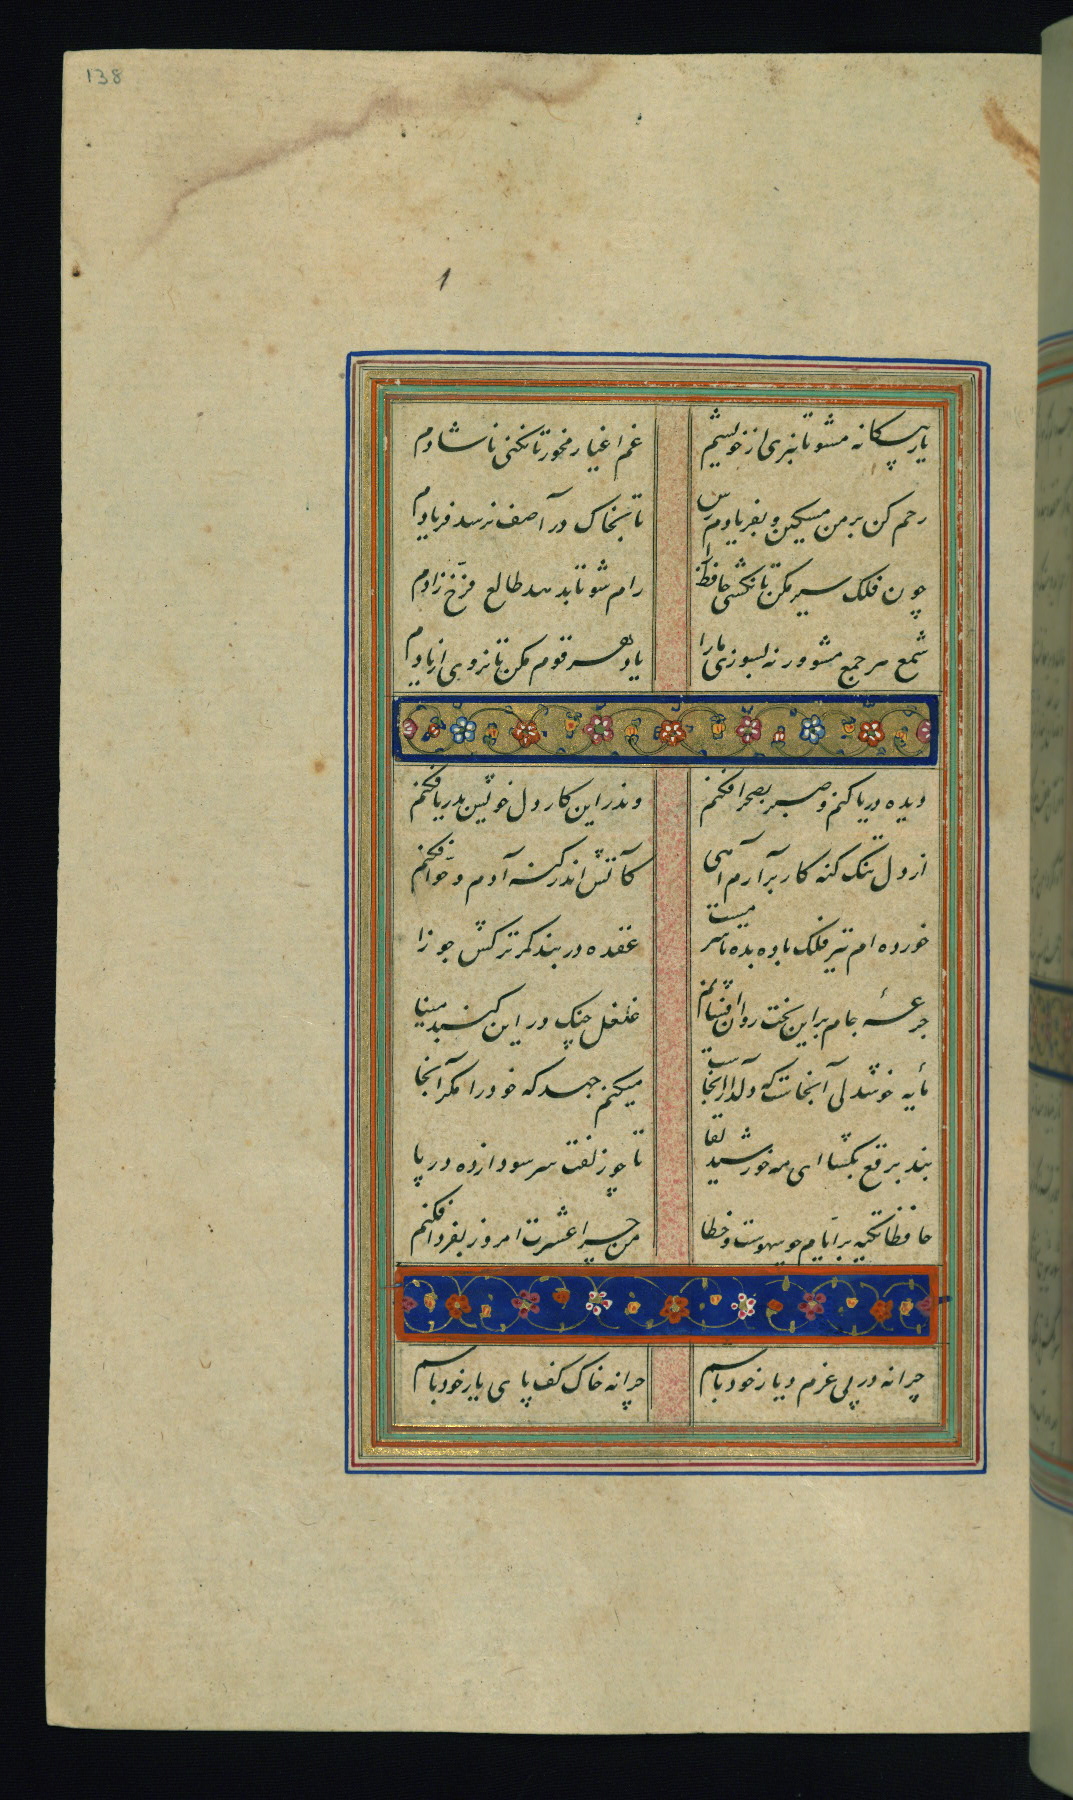 138
یار بیکانه مشو تا نبری از خویشم
غم اغیار مخور تا نکنی ناشادم
رحم کن بر من مسکین و بفریادم رس
تا بخاک در آصف نرسد فریادم
چون فلک سیر مکن تا نکشی حافظ را
رام شو تا بدهد طالع فرّخ زادم
شمع هر جمع مشو ور نه بسوزی مارا
یاد هر قوم مکن تا نروی از یادم
دیده دریا کنم و صبر بصحرا فکنم
وندر این کار دل خویش بدریا فکنم
از دل تنک کنه کار برآرم آهی
کآتش اندر کنه آدم و حوّا فکنم
خورده ام تیر فلک باده بده تا سر مست
عقده در بند کمر ترکش جوزا
جرعهٔ جام بر این تخت روان افشانم
غلغل چنک در این کنبد مینا
مایه خوشدلی آنجاست که دلدار آنجاست
میکنم جهد که خود را مکر آنجا
بند برقع بکشا ای مه خورشید لقا
تا چو زلفت سر سودا زده در پا
حافظا تکیه بر ایّام چو سهوست و خطا
من چرا عشرت امروز بفردا فکنم
چرا نه در پی عزم دیار خود باشم
چرا نه خاک کف پای یار خود باشم